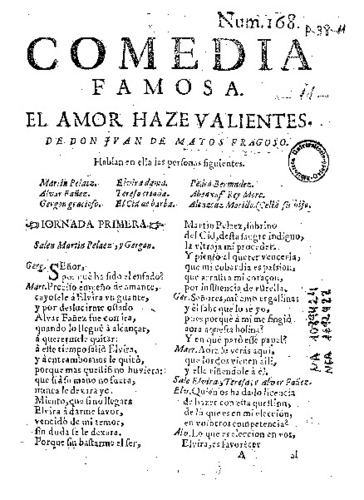 Num. 168.
COMEDIA
FAMOSA.
EL AMOR HAZE VALIENTES.
DE DON JVAN DE MATOS FRAGOSO.
Hablan en ella las personas siguientes.
Martin Pelaez. Elvira dama. Pedro Bermudez.
Alvar Fañez. Teresa criada. Rey Moro.
Gergon gracioso. El Cid de barba.
JORNADA PRIMERA.
Salen Martin Pelaez, y Gergon.
Gerg. SEñor,
por què ha sido el enfado?
Mart. Preciso empeño de amante,
cayòsele à Elvira un guante,
y por desluzir mi osado
Alvar Fañez fue con ira,
quando lo lleguè à alcançar,
à querermele quitar:
à este tiempo saliò Elvira,
y à entrambos nos le quitò,
porque mas question no huviera:
que si à su mano no fuera,
nunca le dexara yo.
Miento, que si no llegara
Elvira à darme favor,
vencido de mi temor,
sin duda se le dexara.
Porque sin bastarme el ser,
Martin Pelaez, sobrino
del Cid, desta sangre indigno,
la ultraja mi proceder.
Y pienso al querer vencerla,
que mi cobardia es passion,
que arrastra mi coraçon,
por influencia de estrella.
Ger. Señores,
y èl sabe que lo se yo,
pues porquè à mi me
aora aquesta
Y en què parò esse
Mart. Aora lo veràs aqui,
que los dos vienen alli,
y ella riñendole à èl.
Sale Elvira, y Teresa, y Alvar Fañez.
Elv. Quièn os ha dado licencia
de hazer con esta question,
de la que es en mi eleccion,
en vosotros competencia?
Alv. Lo que es eleccion en vos,
Elvira, es favorecer
A al